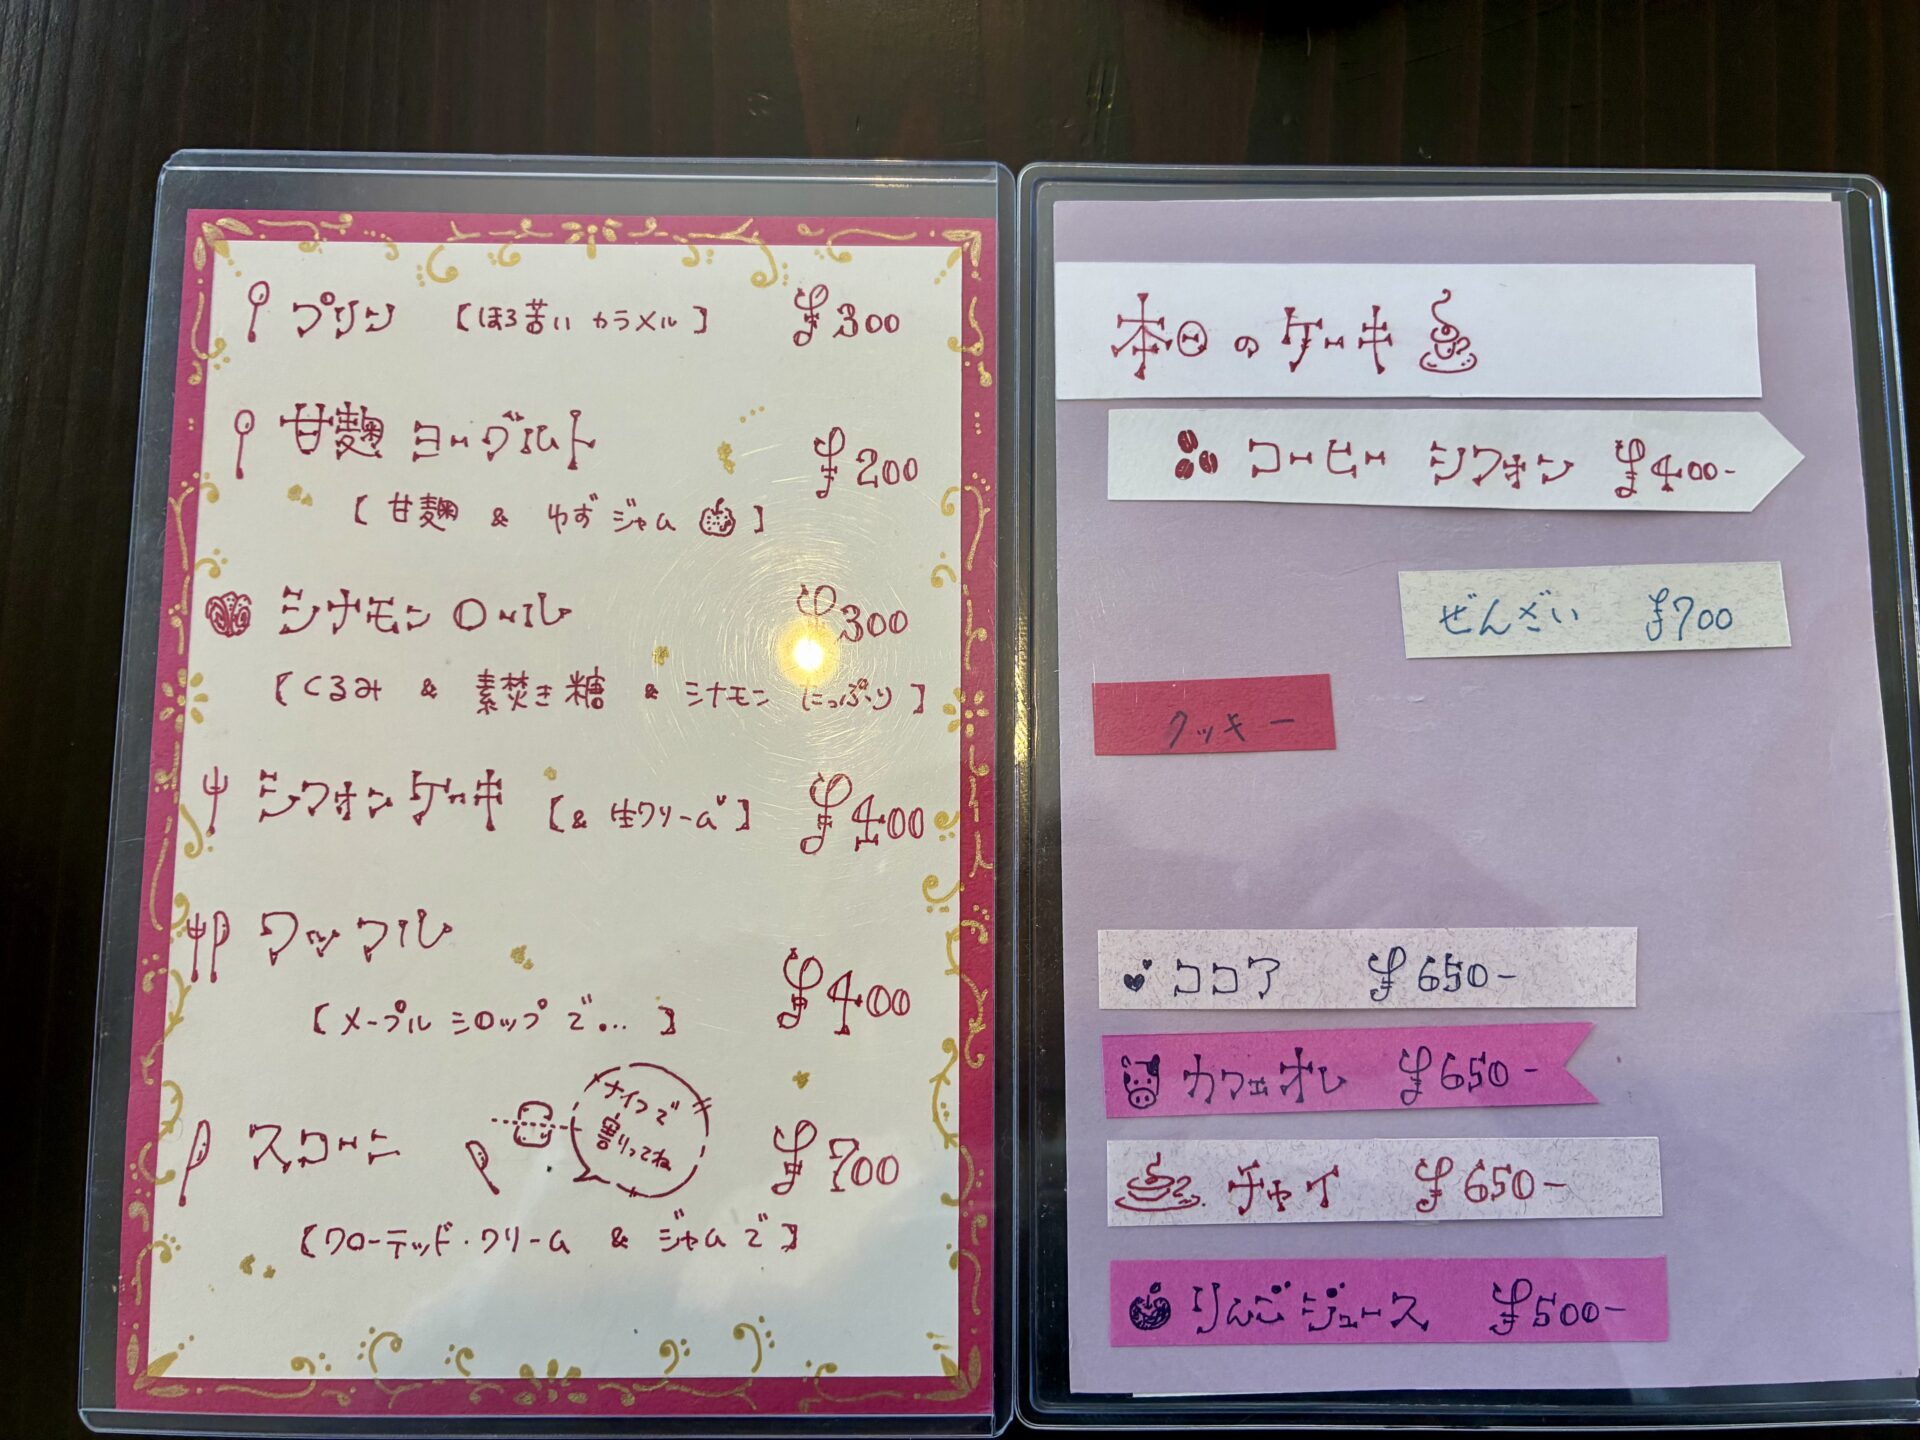 プリン 【ほろ苦い カラメル】 ¥300
甘麹 ヨーグルト ¥200
【甘麹 & ゆず ジャム】
シナモン ロール ¥300
【くるみ & 素焚き糖 & シナモン たっぷり】
シフォン ケーキ 【& 生クリーム】 ¥400
ワッフル ¥400
【メープル シロップ で...】
スコーン ¥700
ナイフで
割ってね
【クローテッド・クリーム & ジャムで】
本日 の ケーキ
コーヒー シフォン ¥400-
ぜんざい ¥700
クッキー
ココア ¥650-
カフェオレ ¥650-
チャイ ¥650-
りんごジュース ¥500-